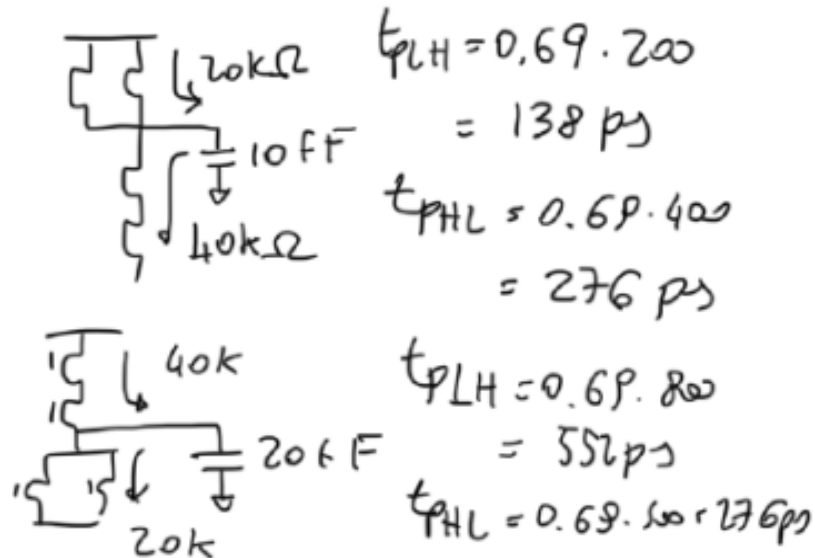 20kΩ
10fF
40kΩ
tPLH = 0.69 · 200
= 138 ps
tPHL = 0.69 · 400
= 276 ps
40k
20fF
20k
tPLH = 0.69 · 800
= 552ps
tPHL = 0.69 · 400 = 276ps